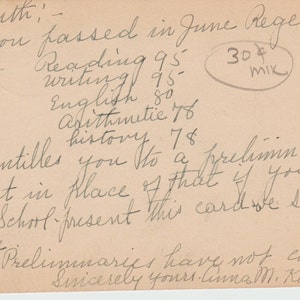 uth;-
ou passed in June Rege
Reading 95
writing 95
English 80
arithmetic 78
history 78
30¢
MIK
ntitles you to a prelimin
t in place of that if you
School-present this card
Preliminaries have not c
Sincerely yours. Anna M. K